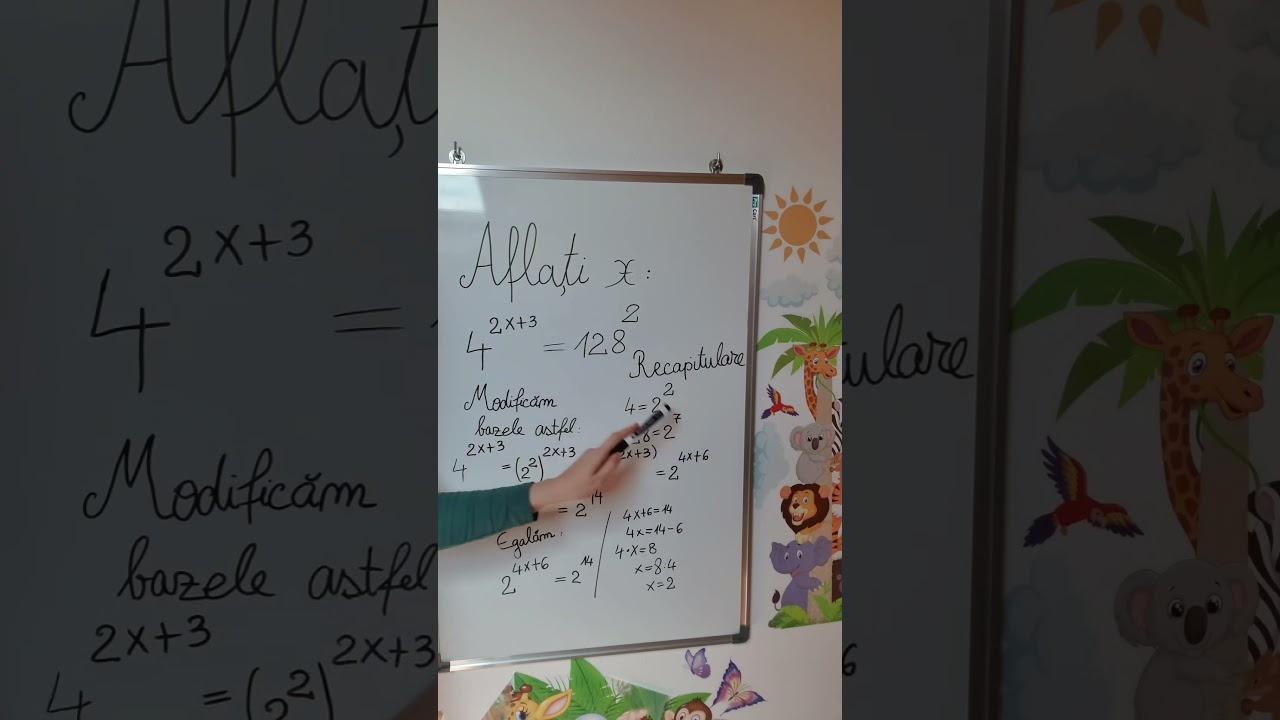 Aflați x:
4^{2x+3} = 128^2
Recapitulare
4 = 2^2
28 = 2^7
Modificăm
bazele astfel:
4^{2x+3} = (2^2)^{2x+3}
2x+3)
= 2^{4x+6}
= 2^{14}
Egalăm:
2^{4x+6} = 2^{14}
4x+6=14
4x=14-6
4·x=8
x=8:4
x=2